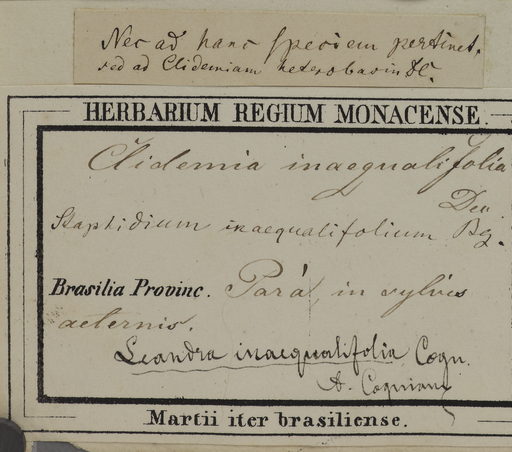 Nec ad hanc speciem pertinet,
sed ad Clidemiam heterobasin DC.
HERBARIUM REGIUM MONACENSE.
Clidemia inaequalifolia
Staphidium inaequalifolium
Brasilia Provinc. Pará, in sylvis
aeternis.
Leandra inaequalifolia Cogn.
A. Cogniaux
Martii iter brasiliense.